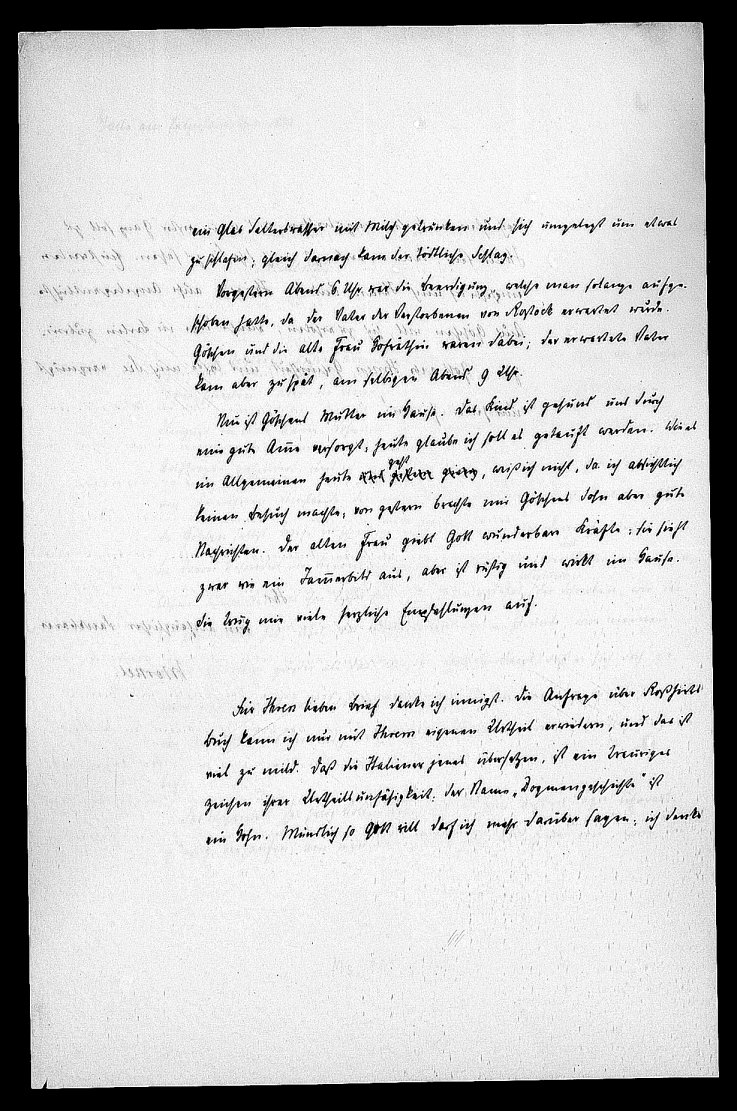 ein Glas Selterswasser mit Milch getrunken und sich umgelegt um etwas
zu schlafen; gleich darnach kam der tödtliche Schlag.
Vorgestern Abend 6 Uhr war die Beerdigung, welche man solange aufge-
schoben hatte, da der Vater der Verstorbenen von Rostock erwartet wurde.
Göschen und die alte Frau Hofräthin waren dabei; der erwartete Vater
kam aber zu spät, am selbigen Abend 9 Uhr.
Nun ist Göschens Mutter im Hause. Das Kind ist gesund und durch
eine gute Amme versorgt; heute glaube ich soll es getauft werden. Wie es
im Allgemeinen heute geht, weiß ich nicht, da ich absichtlich
keinen Besuch machte; von gestern brachte mir Göschens Sohn aber gute
Nachrichten. Der alten Frau giebt Gott wunderbare Kräfte; sie sieht
zwar wie ein Jammerbild aus, aber ist rüstig und wirkt im Hause.
Sie trug mir viele herzliche Empfehlungen auf.
Für Ihren lieben Brief danke ich innigst. Die Anfrage über Roßhirts
Buch kann ich nur mit Ihrem eigenen Urtheil erwiedern, und das ist
viel zu mild. Daß die Italiener jenes übersetzen, ist ein trauriges
Zeichen ihrer Urtheilsunfähigkeit. Der Name "Dogmengeschichte" ist
ein Hohn. Mündlich so Gott will darf ich mehr darüber sagen; ich denke